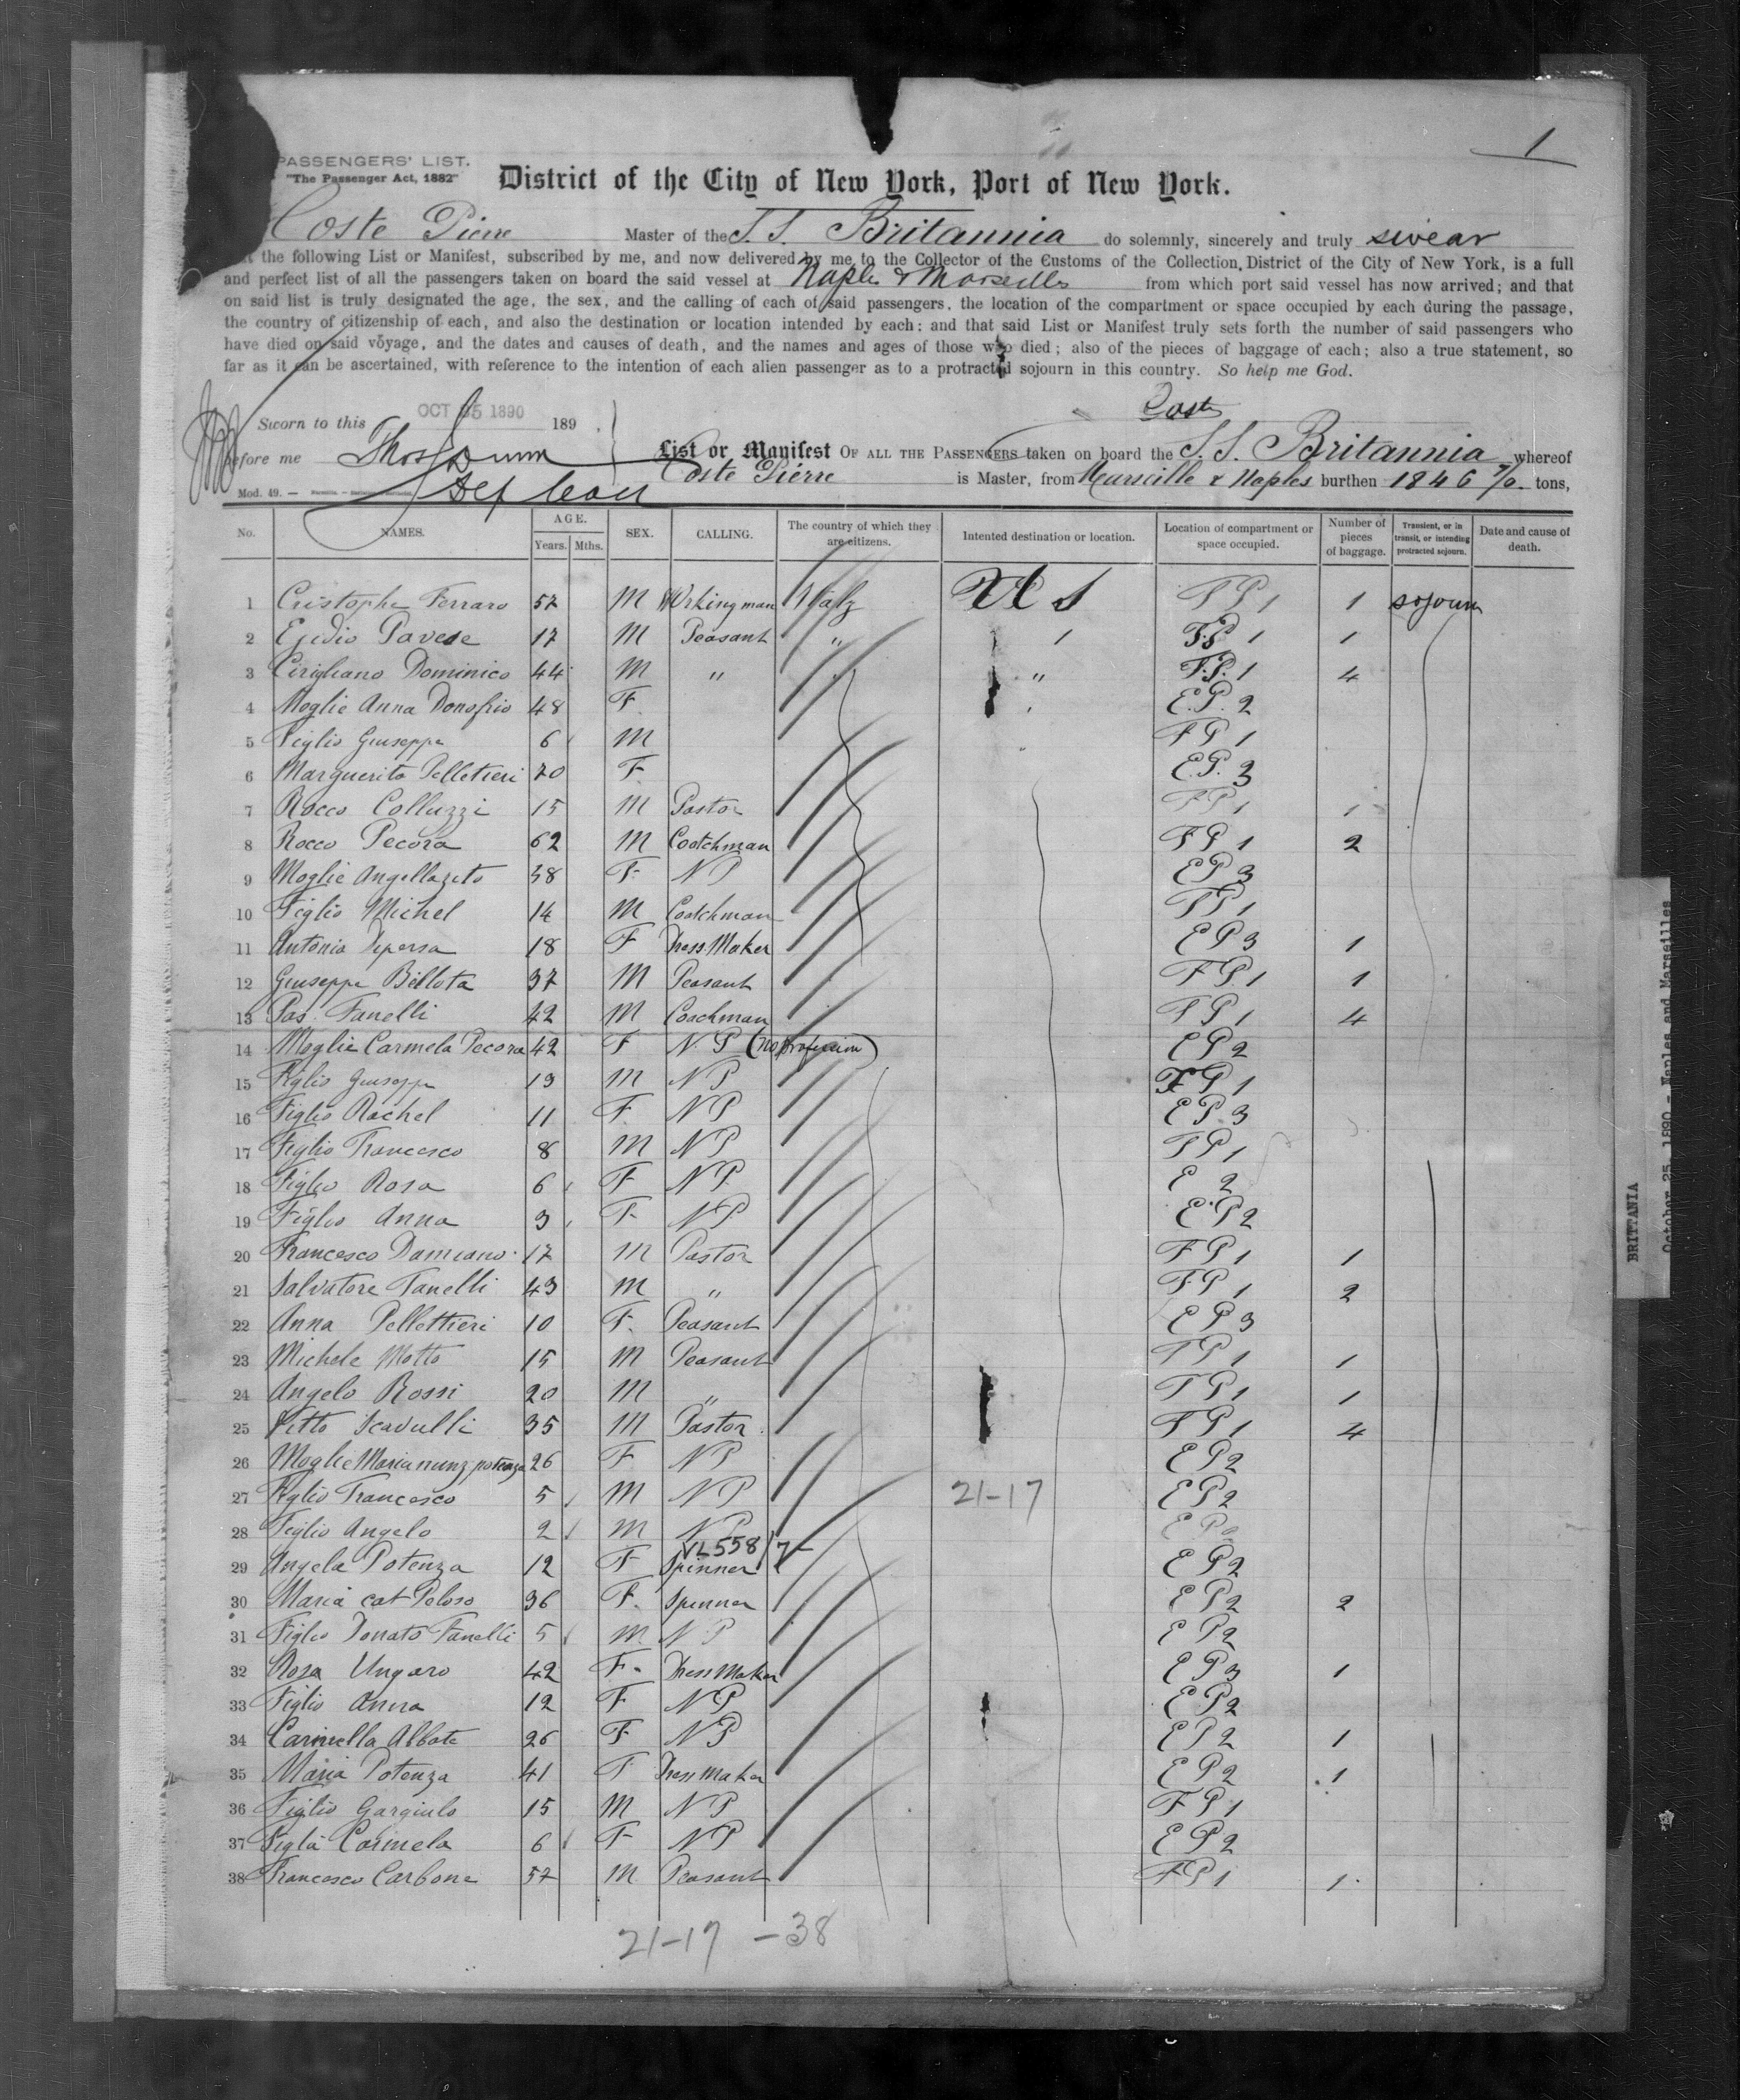 1
PASSENGERS' LIST.
"The Passenger Act, 1882"
District of the City of New York, Port of New York.
Coste Pierre Master of the S.S. Britannia do solemnly, sincerely and truly swear
the following List or Manifest, subscribed by me, and now delivered by me to the Collector of the Customs of the Collection District of the City of New York, is a full
and perfect list of all the passengers taken on board the said vessel at Naples & Marseilles from which port said vessel has now arrived; and that
on said list is truly designated the age, the sex, and the calling of each of said passengers, the location of the compartment or space occupied by each during the passage,
the country of citizenship of each, and also the destination or location intended by each; and that said List or Manifest truly sets forth the number of said passengers who
have died on said voyage, and the dates and causes of death, and the names and ages of those who died; also of the pieces of baggage of each; also a true statement, so
far as it can be ascertained, with reference to the intention of each alien passenger as to a protracted sojourn in this country. So help me God.
Coste
Sworn to this OCT 25 1890 189
before me Thos Dunn
List or Manifest OF ALL THE PASSENGERS taken on board the S.S. Britannia whereof
Coste Pierre is Master, from Marseille & Naples burthen 1846 tons,
Mod. 49. — Dep Coll
No. NAMES. AGE. Years. Mths. SEX. CALLING. The country of which they are citizens. Intented destination or location. Location of compartment or space occupied. Number of pieces of baggage. Transient, or in transit, or intending protracted sojourn. Date and cause of death.
1 Cristophe Ferraro 57 M Workingman Italy U S F P 1 1 sojourn
2 Egidio Pavese 17 M Peasant " F.P 1 1
3 Cirigliano Dominico 44 M " " F.P. 1 4
4 Moglie Anna Donofrio 48 F E.P. 2
5 Figlio Giuseppe 6 M F P 1
6 Marguerita Pelletieri 70 F E.P. 3
7 Rocco Colluzzi 15 M Pastor F P 1 1
8 Rocco Pecora 62 M Coatchman F P 1 2
9 Moglie Angellazeto 38 F N P E P 3
10 Figlio Michel 14 M Coatchman F P 1
11 Antonia Depersa 18 F Dress Maker E P 3 1
12 Giuseppe Bellota 37 M Peasant F P 1 1
13 Pas. Fanelli 42 M Coachman F P 1 4
14 Moglie Carmela Pecora 42 F N. P (no profession) E P 2
15 Figlio Giuseppe 13 M N P F P 1
16 Figlio Rachel 11 F N P E P 3
17 Figlio Francesco 8 M N P F P 1
18 Figlio Rosa 6 F N P E 2
19 Figlio Anna 3 F N P E P 2
20 Francesco Damiano 17 M Pastor F P 1 1
21 Salvatore Fanelli 43 M " F P 1 2
22 Anna Pellettieri 10 F Peasant E P 3
23 Michele Motto 15 M Peasant F P 1 1
24 Angelo Rossi 20 M " F P 1 1
25 Vitto Scavulli 35 M Pastor F P 1 4
26 Moglie Maria nunz potenza 26 F N P E P 2
27 Figlio Francesco 5 M N P 21-17 E P 2
28 Figlio Angelo 2 M N P E P 2
VL 558
29 Angela Potenza 12 F Spinner E P 2
30 Maria cat Peloso 36 F. Spinner E P 2 2
31 Figlio Donato Fanelli 5 M N P E P 2
32 Rosa Ungaro 42 F Dress Maker E P 3 1
33 Figlio Anna 12 F N P E P 2
34 Carmella Abbate 26 F N P E P 2 1
35 Maria Potenza 41 F Dress maker E P 2 1
36 Figlio Gargiulo 15 M N P F P 1
37 Figlia Carmela 6 F N P E P 2
38 Francesco Carbone 57 M Peasant F P 1 1
21-17 -38
BRITTANIA
October 25, 1890 - Naples and Marseilles